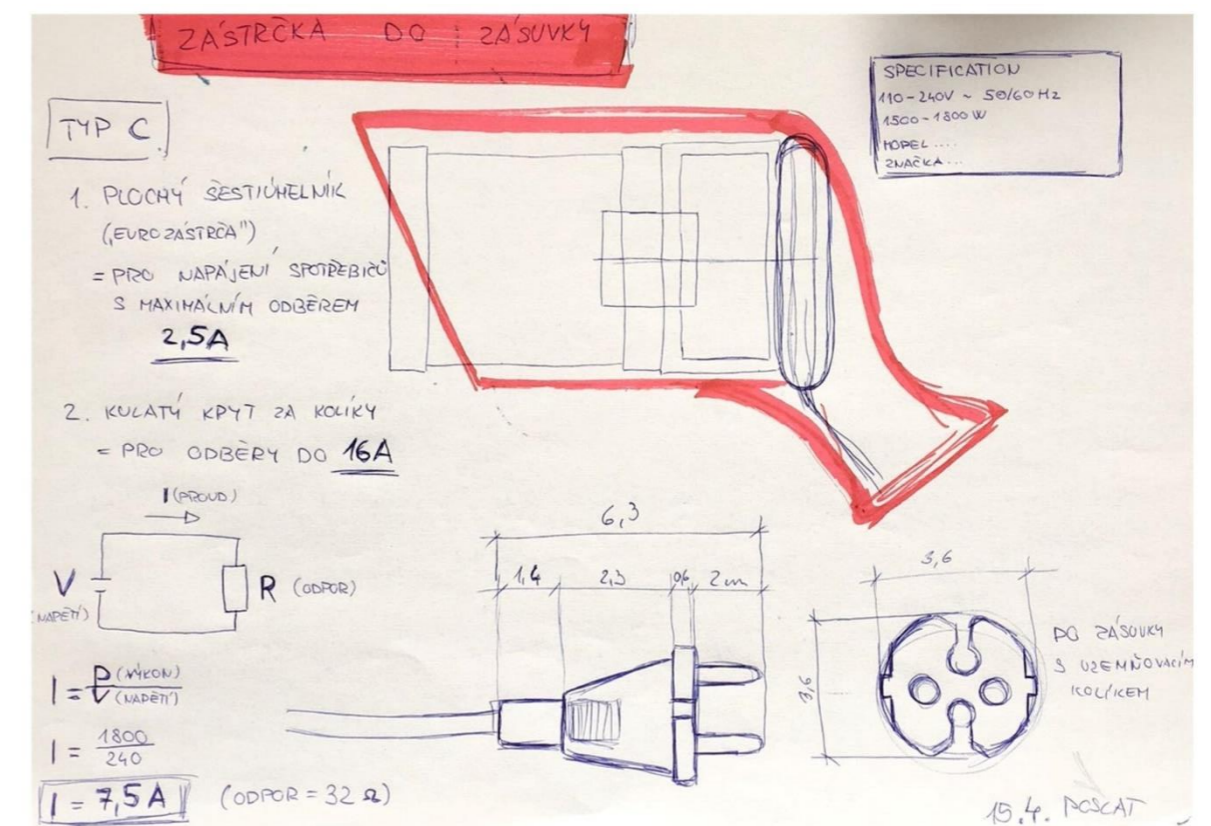 ZÁSTRČKA DO ZÁSUVKY
SPECIFICATION
110-240V ~ 50/60Hz
1500-1800 W
MODEL ....
ZNAČKA ...
TYP C
1. PLOCHÝ ŠESTIÚHELNÍK
(„EUROZÁSTRČA")
= PRO NAPÁJENÍ SPOTŘEBIČŮ
S MAXIMÁLNÍM ODBĚREM
2,5A
2. KULATÝ KRYT ZA KOLÍKY
= PRO ODBĚRY DO 16A
I (PROUD)
V
(NAPĚTÍ)
R (ODPOR)
I = P (VÝKON)
V (NAPĚTÍ)
I = 1800
240
I = 7,5A (ODPOR = 32 Ω)
6,3
1,4 2,3 0,6 2cm
3,6
3,6
DO ZÁSUVKY
S UZEMŇOVACÍM
KOLÍKEM
15.4. POSLAT